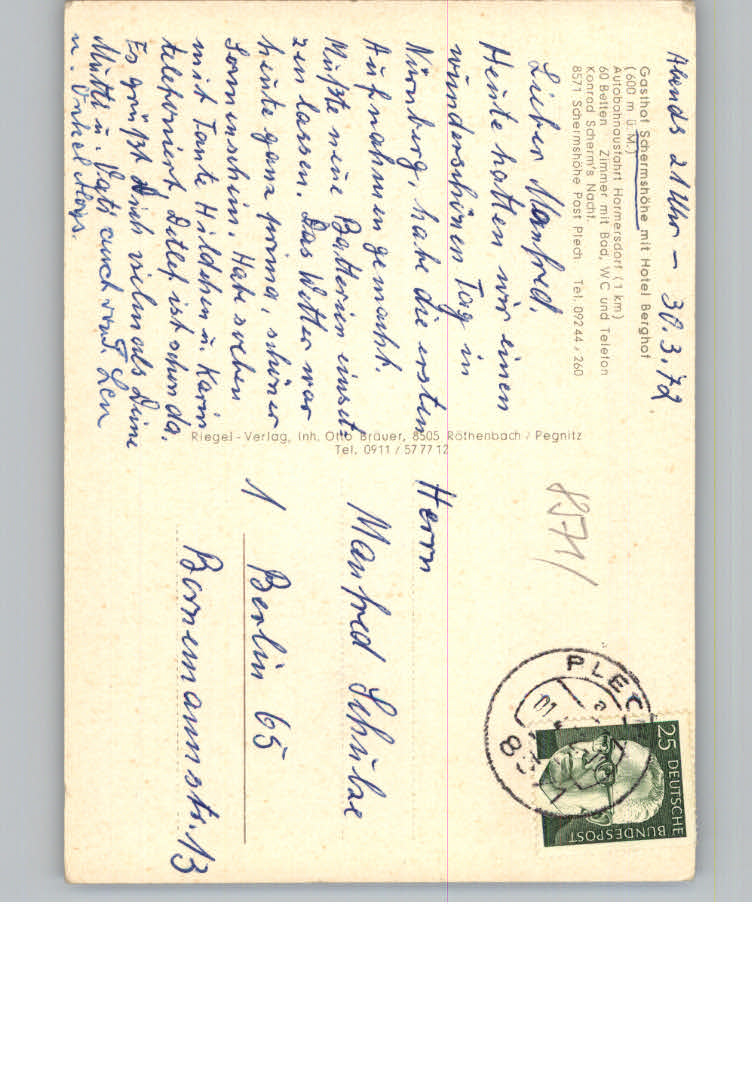 Abends 21 Uhr – 30.3.72
Gasthof Schermshöhe mit Hotel Berghof
(600 m ü. M.)
Autobahnausfahrt Hormersdorf (1 km)
60 Betten Zimmer mit Bad, WC und Telefon
Konrad Scherm's Nacht.
8571 Schermshöhe Post Plech Tel. 09244 / 260
Lieber Manfred.
Heute hatten wir einen
wunderschönen Tag in
Nürnberg, habe die ersten
Aufnahmen gemacht.
Mußte neue Batterien einset-
zen lassen. Das Wetter war
heute ganz prima, schöner
Sonnenschein. Habe soeben
mit Tante Hildchen u. Karin
telefoniert Detlef ist schon da.
Es grüßt Dich vielmals Deine
Mutti u. Vati auch von
u. Onkel Aloys.
Riegel-Verlag, Inh. Otto Bräuer, 8505 Röthenbach / Pegnitz
Tel. 0911 / 577712
8571/
PLECH
25 DEUTSCHE
BUNDESPOST
Herrn
Manfred Schulze
1 Berlin 65
Bornemannstr. 13